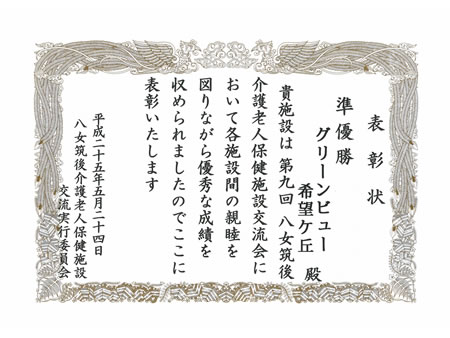 表彰状
準優勝
グリーンビュー
希望ケ丘 殿
貴施設は 第九回 八女筑後
介護老人保健施設交流会に
おいて各施設間の親睦を
図りながら優秀な成績を
収められましたのでここに
表彰いたします
平成二十五年五月二十四日
八女筑後介護老人保健施設
交流実行委員会